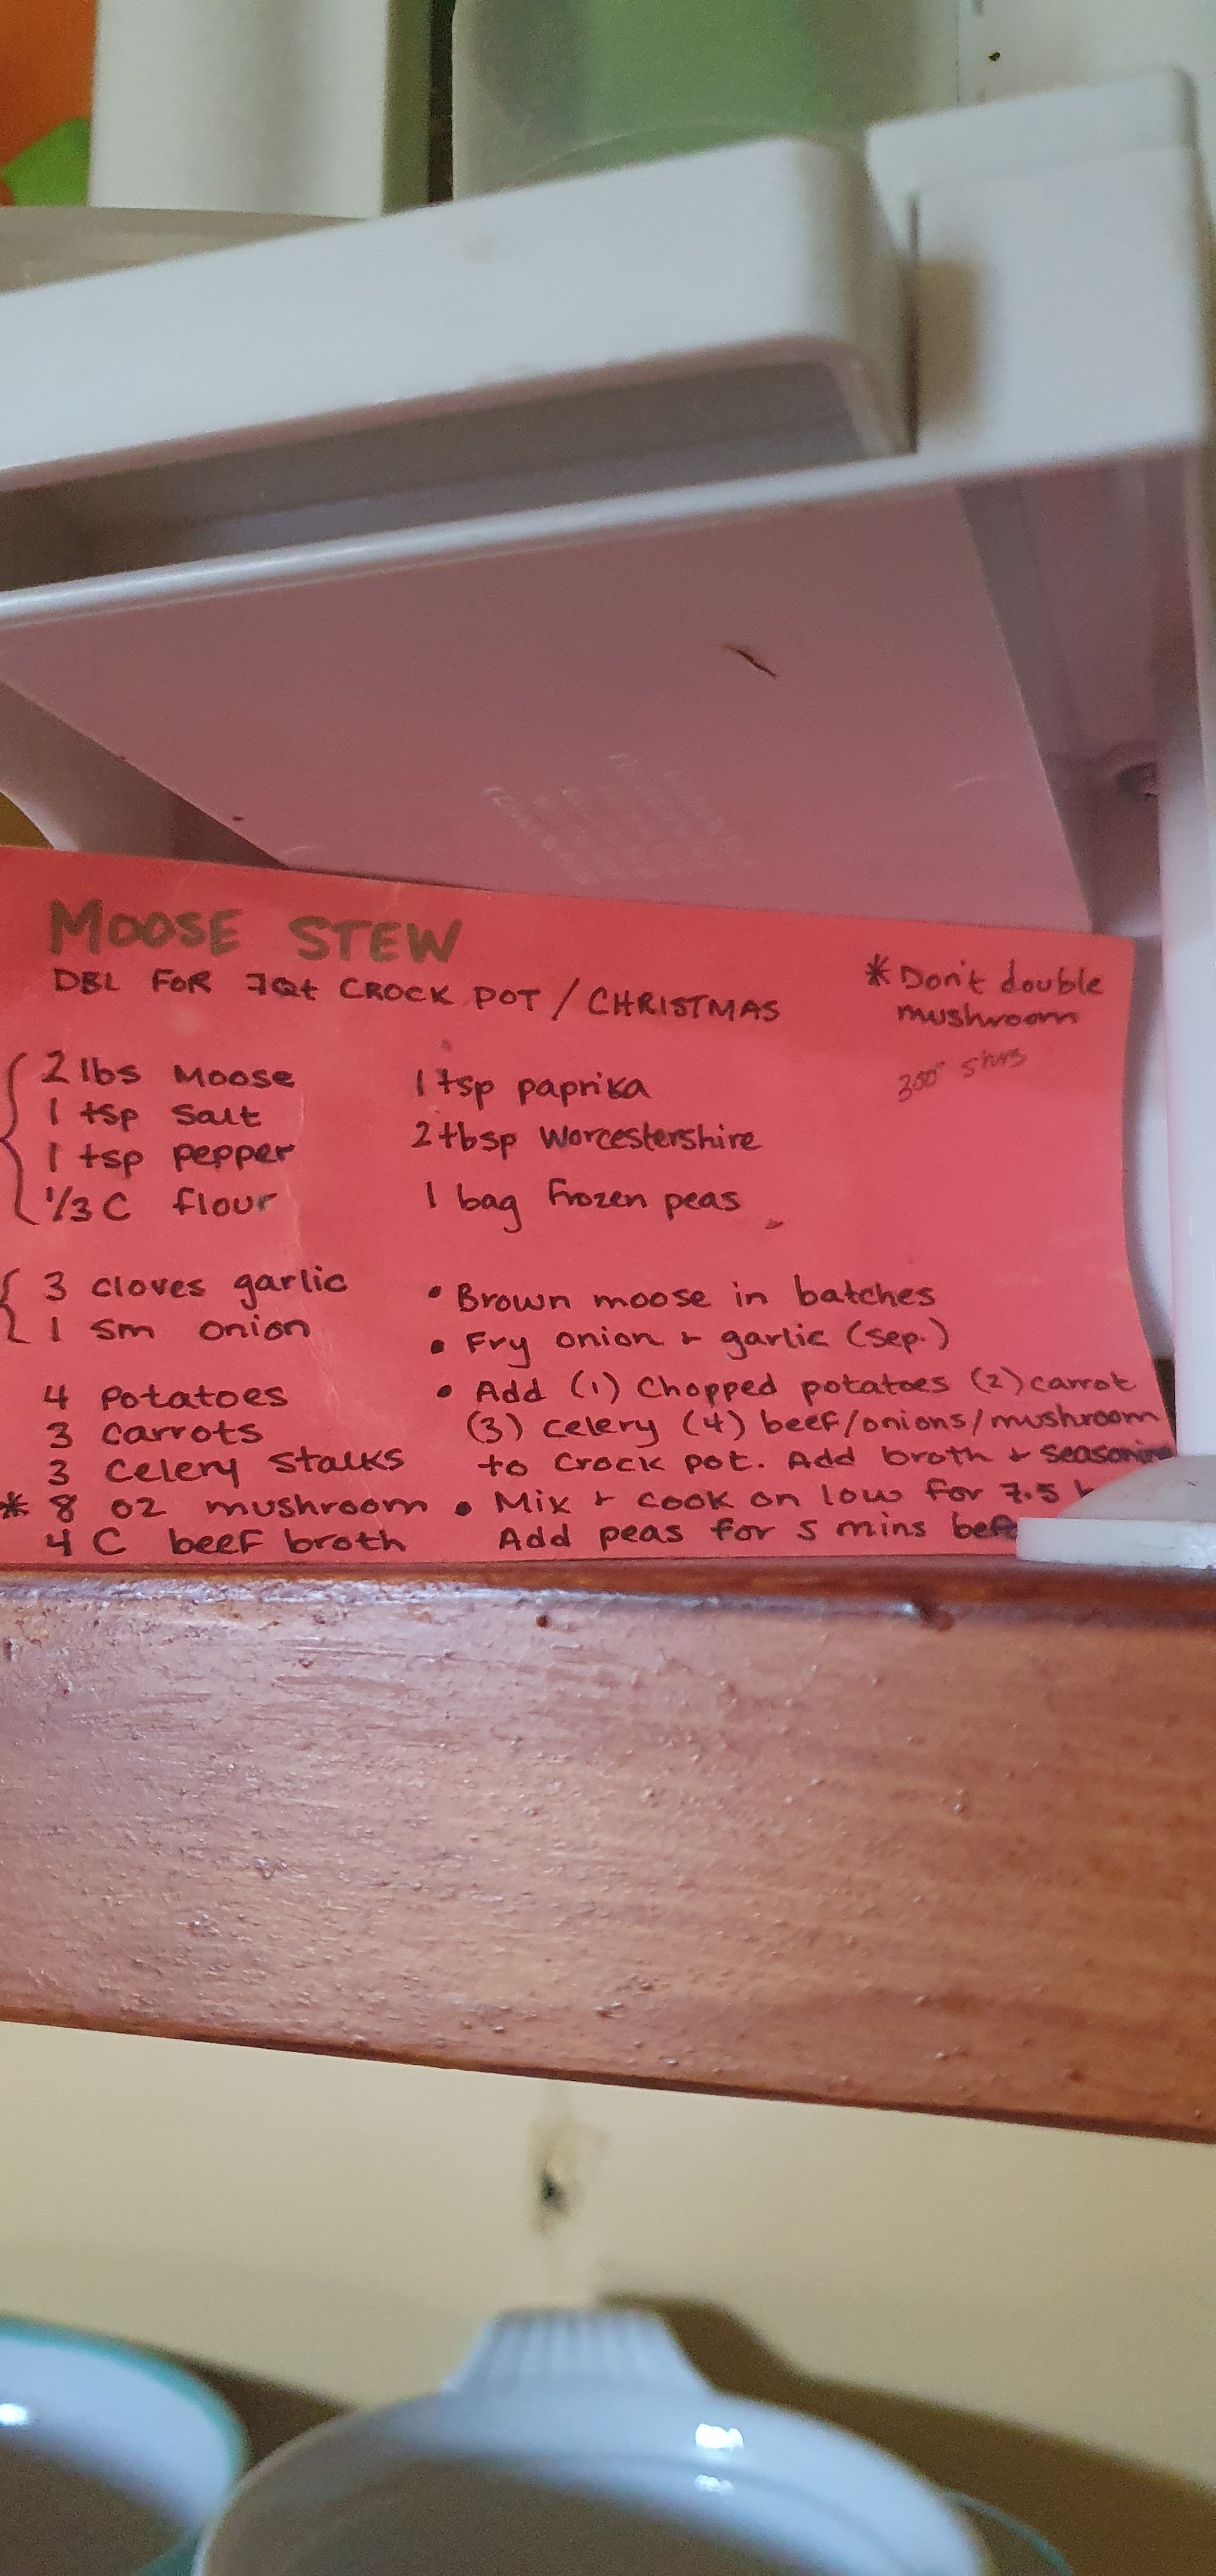 MOOSE STEW
DBL FOR 7Qt CROCK POT / CHRISTMAS
* Don't double
mushroom
300° 5 hrs
2 lbs Moose
1 tsp Salt
1 tsp pepper
1/3 C flour
3 cloves garlic
1 sm onion
4 Potatoes
3 carrots
3 Celery Stalks
* 8 oz mushroom
4 C beef broth
1 tsp paprika
2 tbsp Worcestershire
1 bag frozen peas
• Brown moose in batches
• Fry onion + garlic (sep.)
• Add (1) Chopped potatoes (2) carrot
(3) celery (4) beef/onions/mushroom
to Crock pot. Add broth + seasoning
• Mix + cook on low for 7.5
Add peas for 5 mins